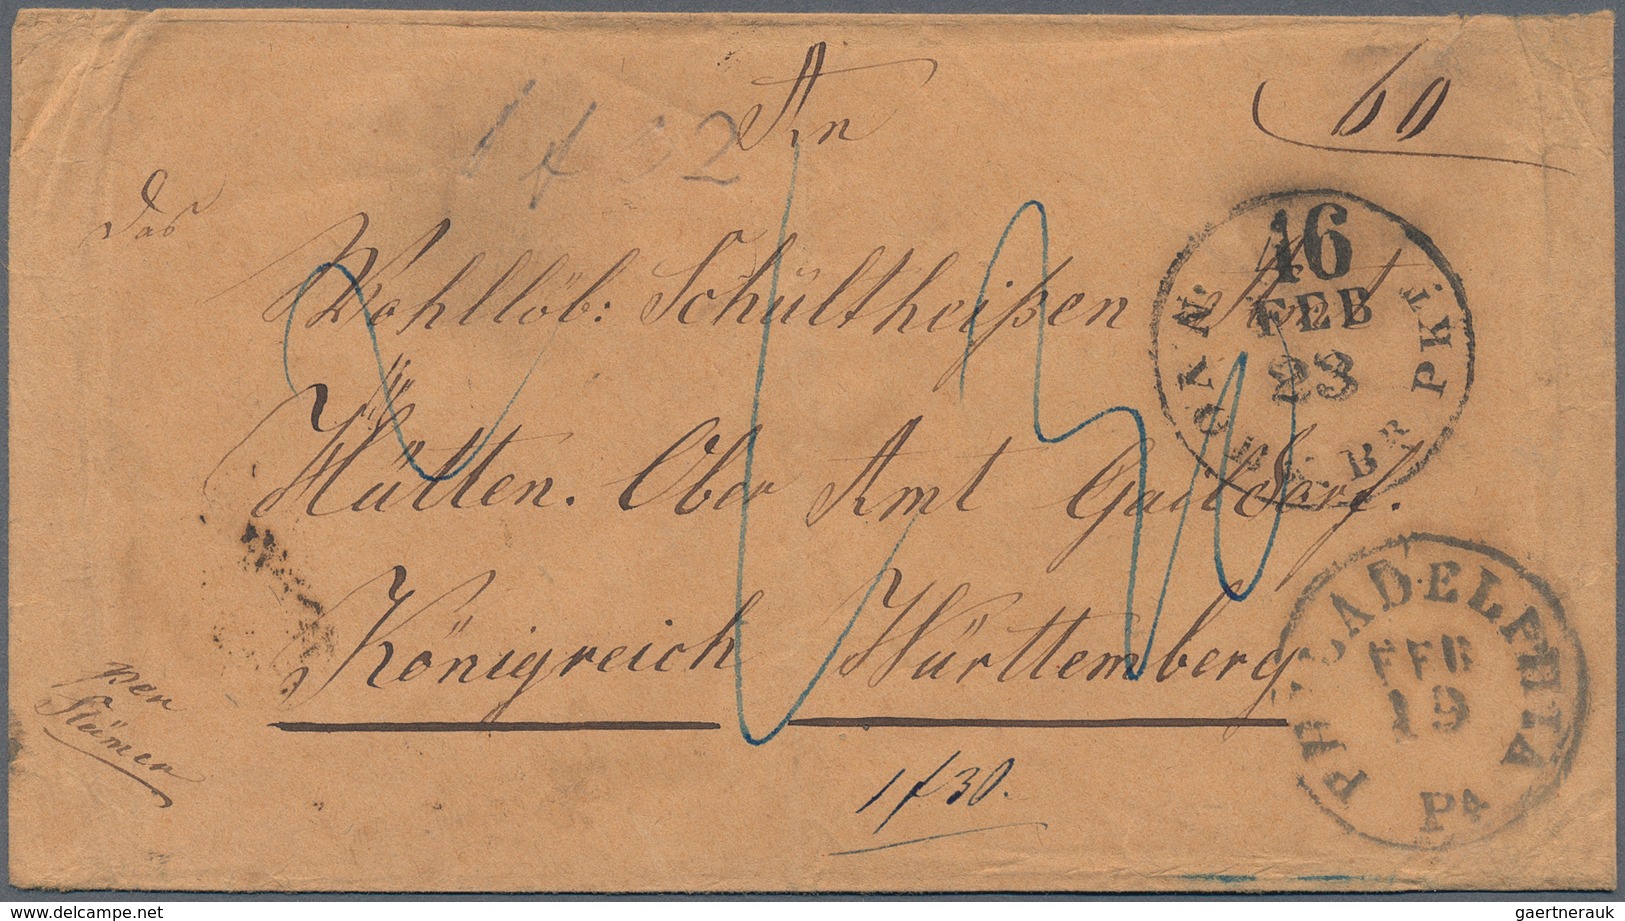 An
60
1 f 32
Das
Wohllöb: Schultheißen Amt
Hütten. Ober Amt Gaildorf.
Königreich Württemberg
per
Stämer
1 f 30.
16
FEB
23
N. PKT.
PHILADELPHIA
FEB
19
Pa
www.delcampe.net
gaertnerauk